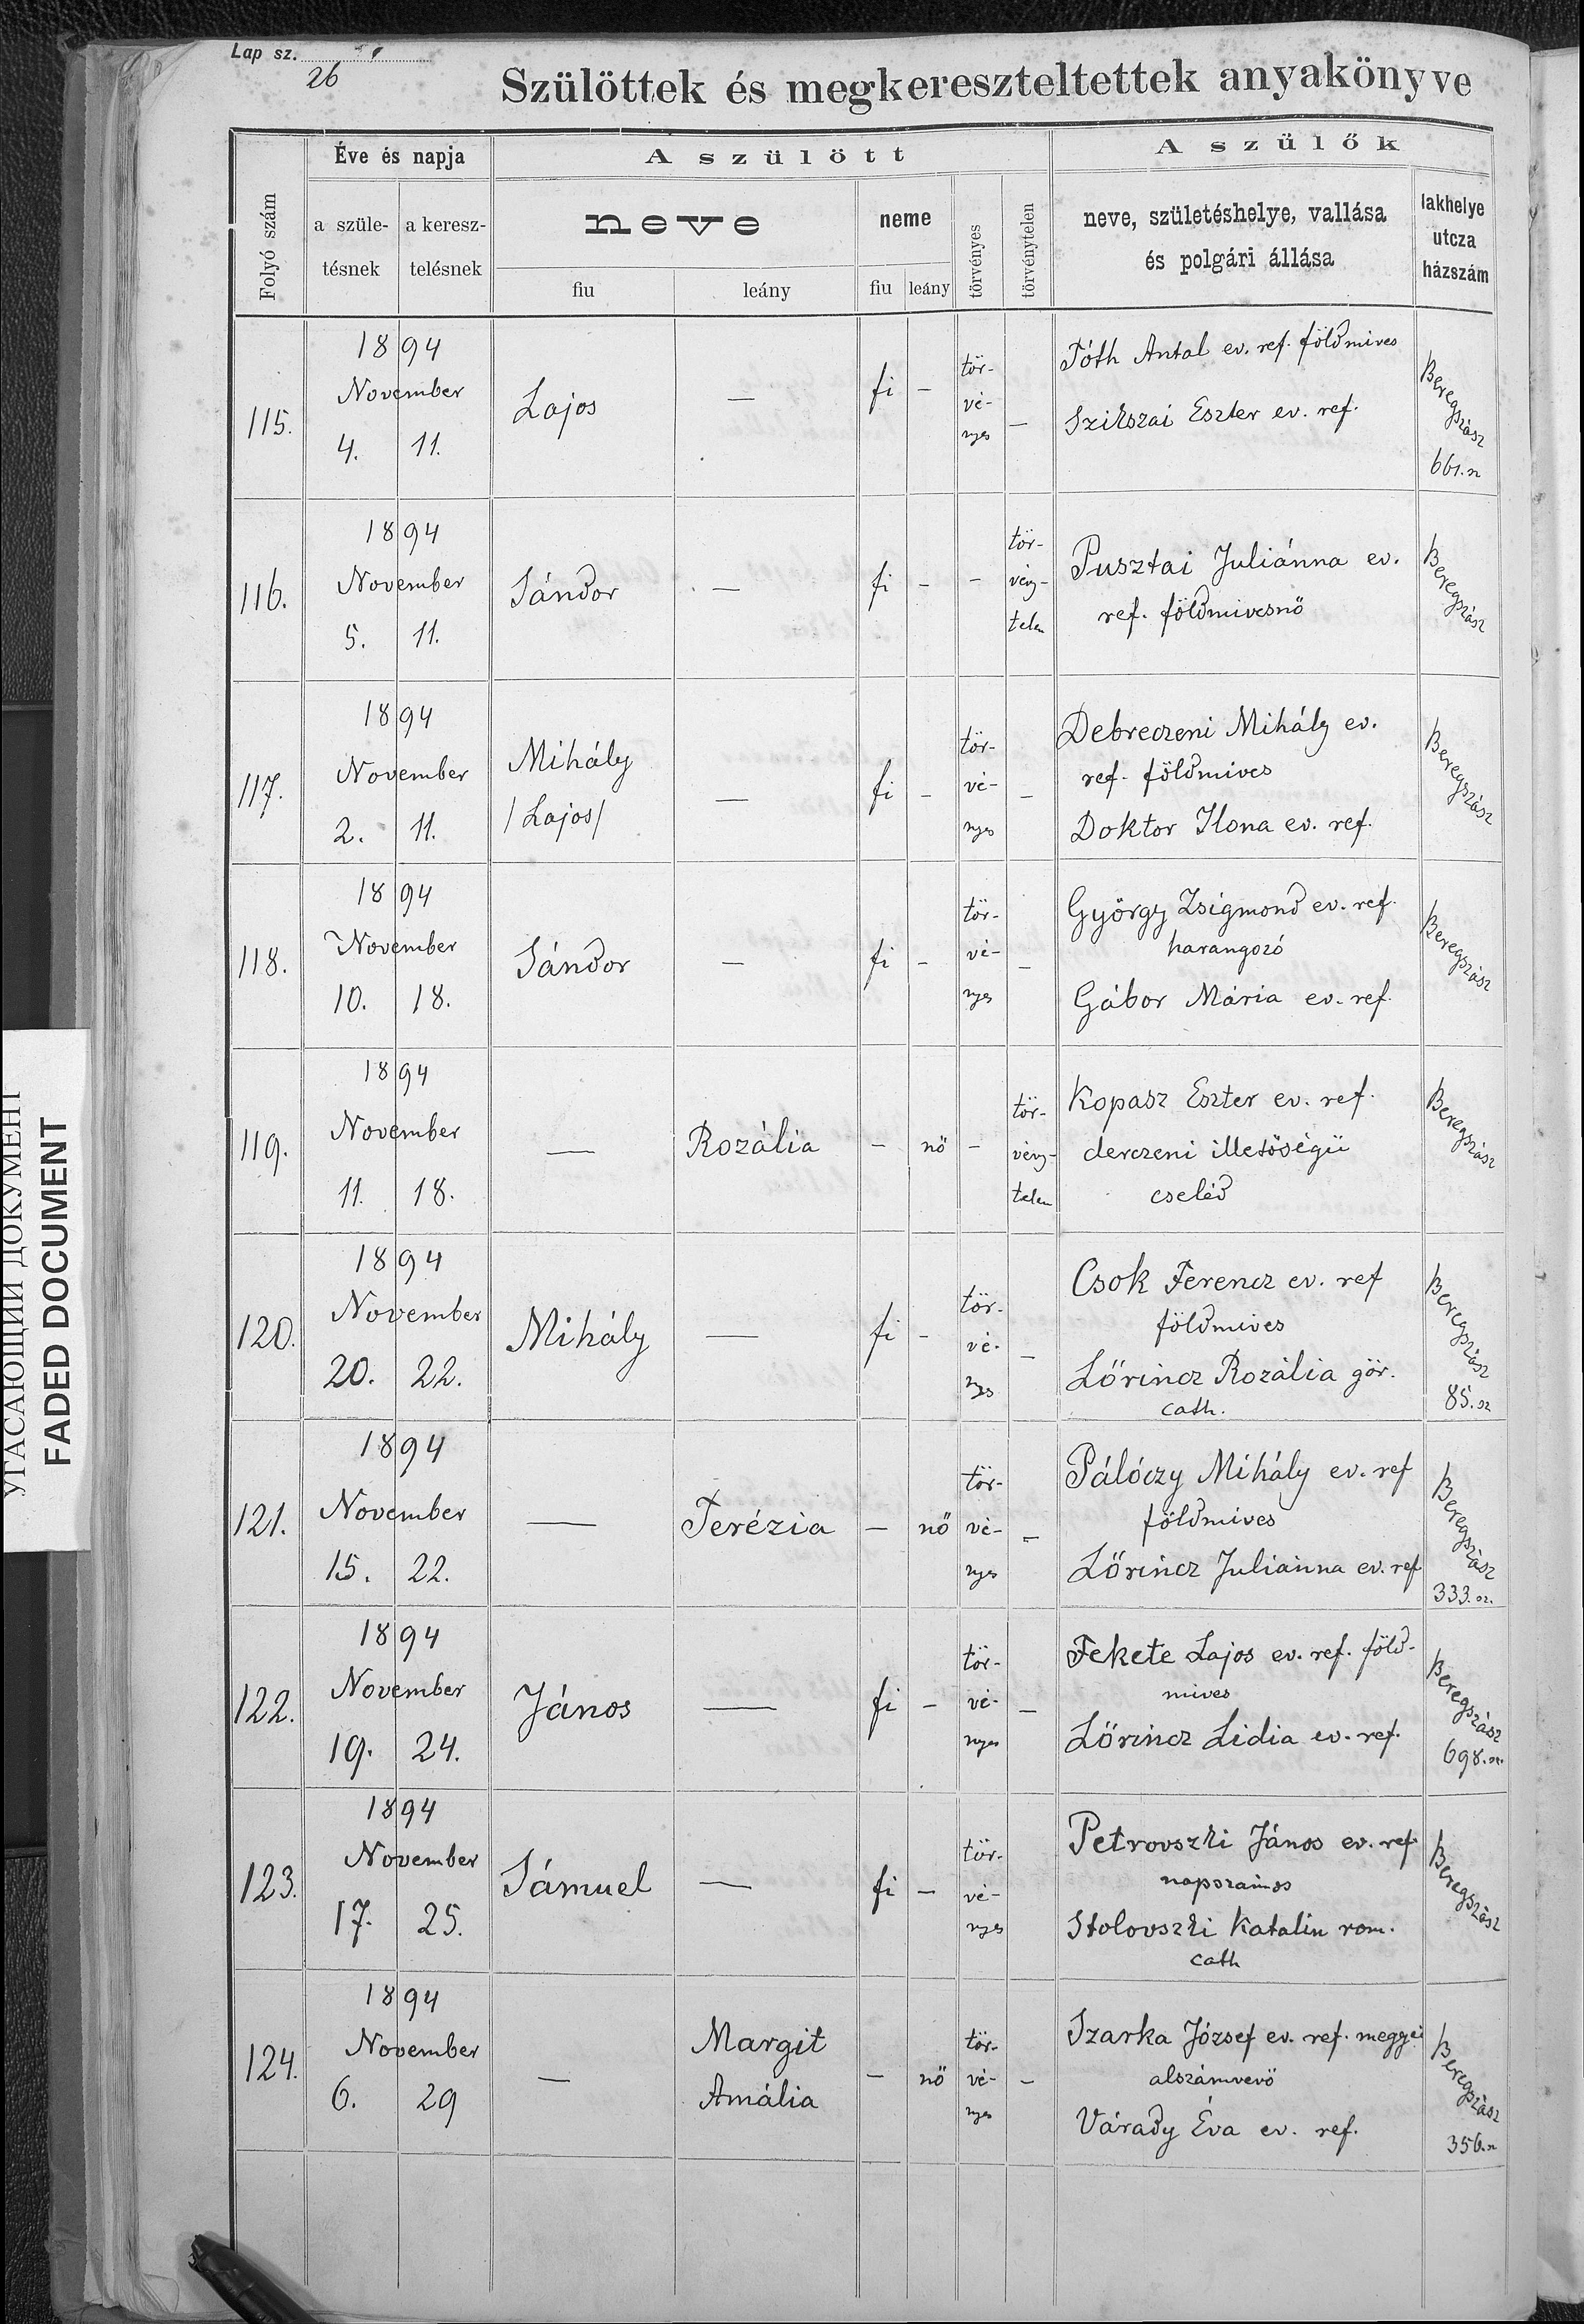 Lap sz.
26
Szülöttek és megkereszteltettek anyakönyve
Folyó szám
Éve és napja
a szüle-tésnek
a keresz-telésnek
A szülött
neve
fiu
leány
neme
fiu
leány
törvényes
törvénytelen
A szülők
neve, születéshelye, vallása
és polgári állása
lakhelye
utcza
házszám
115.
1894
November
4. 11.
Lajos
—
fi
–
tör-
vé-
nyes
–
Tóth Antal ev. ref. földmives
Szikszai Eszter ev. ref.
Beregszász
661.
116.
1894
November
5. 11.
Sándor
—
fi
–
–
tör-
vény-
telen
Pusztai Juliánna ev.
ref. földmivesnő
Beregszász
117.
1894
November
2. 11.
Mihály
/Lajos/
—
fi
–
tör-
vé-
nyes
–
Debreczeni Mihály ev.
ref. földmives
Doktor Ilona ev. ref.
Beregszász
118.
1894
November
10. 18.
Sándor
—
fi
–
tör-
vé-
nyes
–
György Zsigmond ev. ref.
harangozó
Gábor Mária ev. ref.
Beregszász
119.
1894
November
11. 18.
—
Rozália
–
nő
–
tör-
vény-
telen
Kopasz Eszter ev. ref.
derczeni illetőségü
cseléd
Beregszász
120.
1894
November
20. 22.
Mihály
—
fi
–
tör-
vé-
nyes
–
Csok Ferencz ev. ref
földmives
Lőrincz Rozália gör.
cath.
Beregszász
85.
121.
1894
November
15. 22.
—
Terézia
–
nő
tör-
vé-
nyes
–
Pálóczy Mihály ev. ref
földmives
Lőrincz Juliánna ev. ref
Beregszász
333.
122.
1894
November
19. 24.
János
—
fi
–
tör-
vé-
nyes
–
Fekete Lajos ev. ref. föld-
mives
Lőrincz Lidia ev. ref.
Beregszász
698.
123.
1894
November
17. 25.
Sámuel
—
fi
–
tör-
vé-
nyes
Petrovszki János ev. ref.
napszámos
Stolovszki Katalin rom.
cath
Beregszász
124.
1894
November
6. 29
—
Margit
Amália
–
nő
tör-
vé-
nyes
–
Szarka József ev. ref. megyei
alszámvevő
Várady Éva ev. ref.
Beregszász
356.
УГАСАЮЩИЙ ДОКУМЕНТ
FADED DOCUMENT